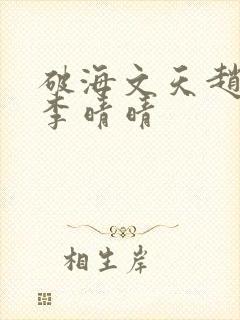 破海文天趙
李晴晴
相生岸